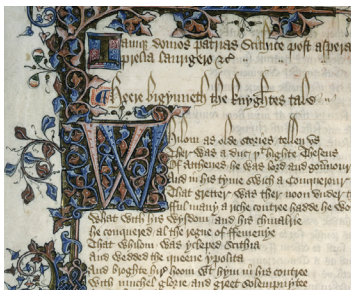 Iamque domos patrias Scithice post aspera
prelia laurigero &c
Heere bigynneth the knyghtes tale
Whilom as olde stories tellen vs
Ther was a duc þt highte Theseus
Of Atthenes he was lord and gouernour
And in his tyme swich a Conquerour
That gretter was ther noon vnder
fful many a riche contree hadde he wo
What with his wysdom and his chiualrie
he conquered al the regne of ffemenye
That whilom was ycleped Scithia
And wedded the queene ypolita
And broghte hir hoom wt hym in his contree
With muchel glorie and greet solempnytee